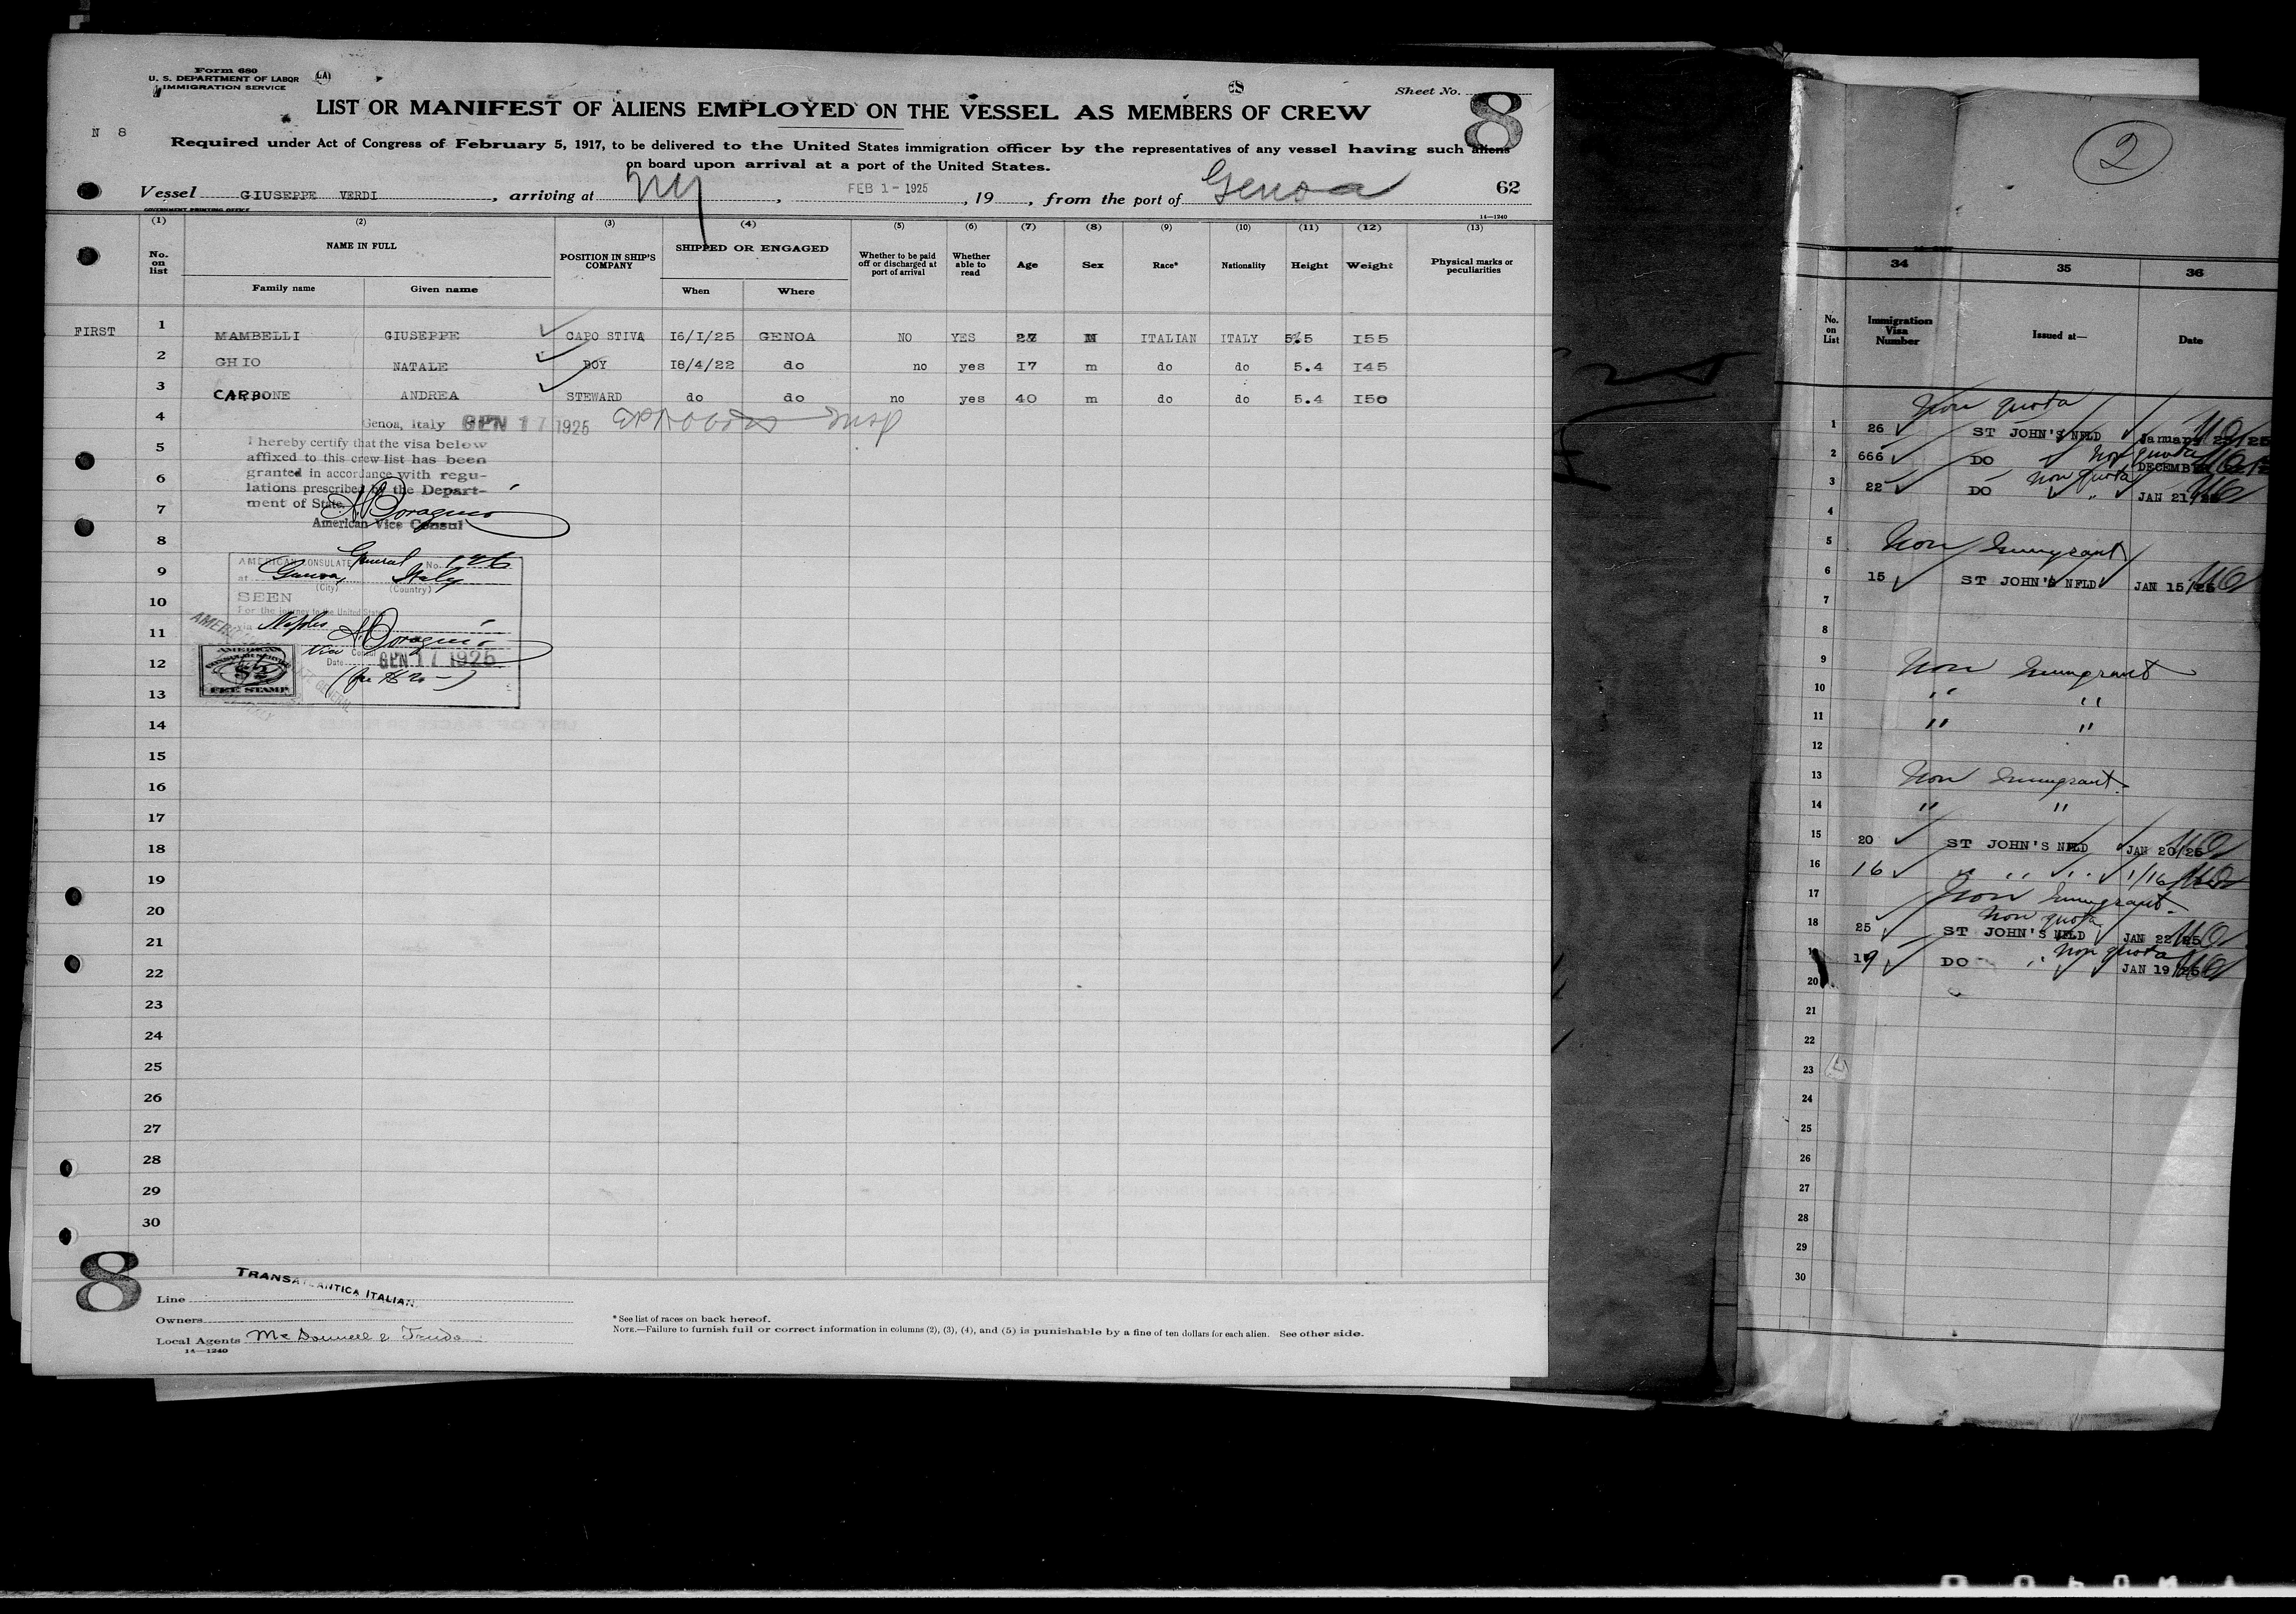 Form 680
U. S. DEPARTMENT OF LABOR
IMMIGRATION SERVICE
Sheet No.
8
N 8
LIST OR MANIFEST OF ALIENS EMPLOYED ON THE VESSEL AS MEMBERS OF CREW
Required under Act of Congress of February 5, 1917, to be delivered to the United States immigration officer by the representatives of any vessel having such aliens
on board upon arrival at a port of the United States.
Vessel GIUSEPPE VERDI, arriving at NY, FEB 1 - 1925, 19, from the port of Genoa 62
GOVERNMENT PRINTING OFFICE
14—1240
(1) (2) (3) (4) (5) (6) (7) (8) (9) (10) (11) (12) (13)
No. on list NAME IN FULL POSITION IN SHIP'S COMPANY SHIPPED OR ENGAGED Whether to be paid off or discharged at port of arrival Whether able to read Age Sex Race* Nationality Height Weight Physical marks or peculiarities
Family name Given name When Where
FIRST 1 MAMBELLI GIUSEPPE CAPO STIVA 16/1/25 GENOA NO YES M ITALIAN ITALY 155
2 GHIO NATALE BOY 18/4/22 do no yes 17 m do do 5.4 145
3 CARBONE ANDREA STEWARD do do no yes 40 m do do 5.4 150
4
Genoa, Italy GEN 17 1925
I hereby certify that the visa below
5
affixed to this crew list has been
granted in accordance with regu-
6
lations prescribed by the Depart-
ment of State.
7
American Vice Consul
8
AMERICAN CONSULATE General No. 126
9
at Genoa, Italy
(City) (Country)
SEEN
10
For the journey to the United States
via Naples
11
Vice Consul
12
Date GEN 17 1925
AMERICAN
CONSULAR SERVICE
$2
FEE STAMP
13
14
15
16
17
18
19
20
21
22
23
24
25
26
27
28
29
30
8
Line TRANSATLANTICA ITALIANA
Owners
Local Agents
14—1240
* See list of races on back hereof.
NOTE.—Failure to furnish full or correct information in columns (2), (3), (4), and (5) is punishable by a fine of ten dollars for each alien. See other side.
2
34 35 36
No. on List Immigration Visa Number Issued at— Date
Non quota
1 26 ST JOHN'S NFLD
Non quota
2 666 DO DECEMBER
Non quota
3 22 DO " JAN 21
4
5 Non Immigrant
6 15 ST JOHN'S NFLD JAN 15/25
7
8
9 Non Immigrant
10 " "
11 " "
12
13 Non Immigrant
14 " "
15 20 ST JOHN'S NFLD JAN 20/25
16 16 " " " 1/16
17 Non Immigrant
Non quota
18 25 ST JOHN'S NFLD JAN 22/25
Non quota
19 19 DO " JAN 19/25
20
21
22
23
24
25
26
27
28
29
30